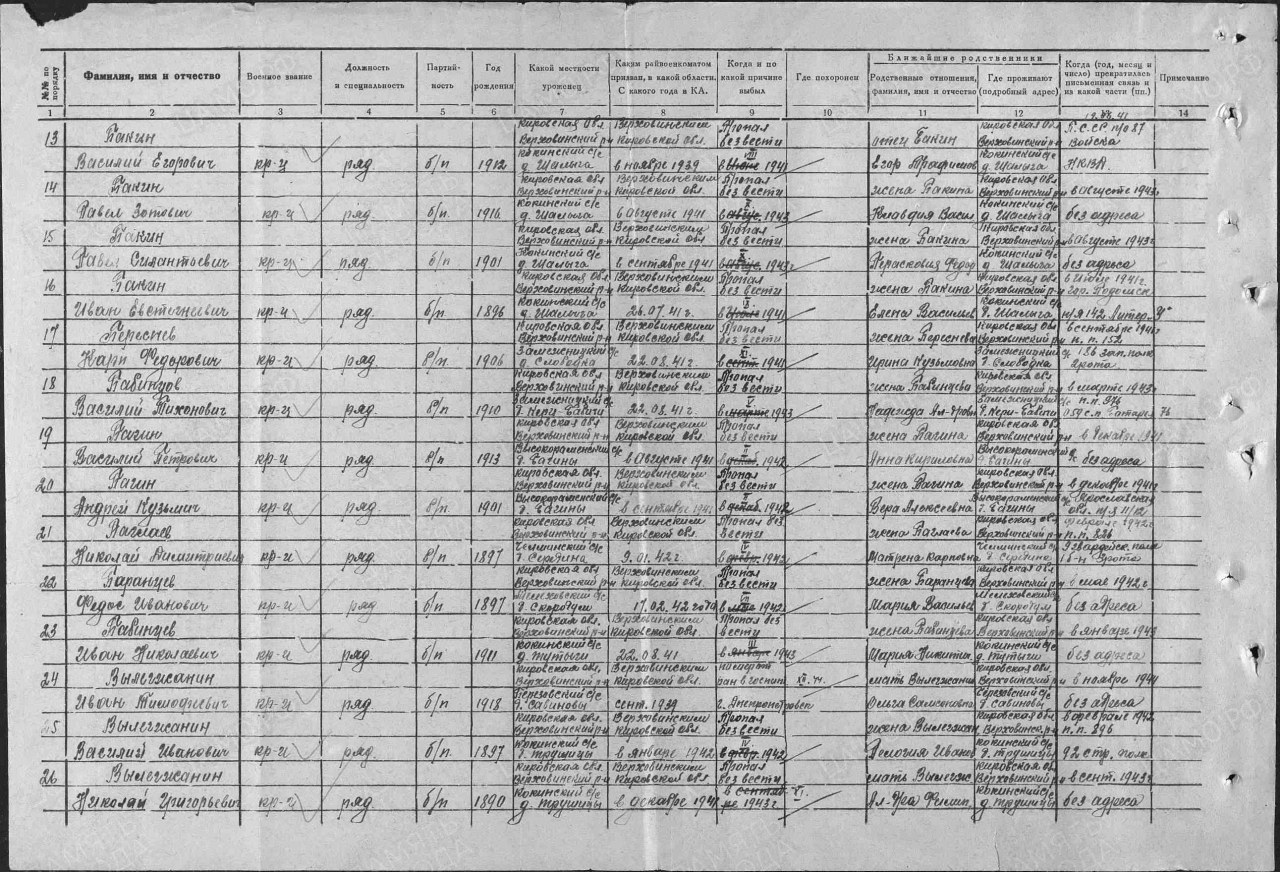 №№ по порядку | Фамилия, имя и отчество | Военное звание | Должность и специальность | Партийность | Год рождения | Какой местности уроженец | Каким райвоенкоматом призван, в какой области. С какого года в КА. | Когда и по какой причине выбыл | Где похоронен | Ближайшие родственники | Когда (год, месяц и число) прекратилась письменная связь и на какой части (пп.) | Примечание
Родственные отношения, фамилия, имя и отчество | Где проживают (подробный адрес)
1 2 3 4 5 6 7 8 9 10 11 12 13 14
13 Бакин Кировская обл Верховинским Пропал Кировская обл
Верховинский р-н Кировской обл. без вести отец Бакин Верховинский войска
Василий Егорович кр-ц ряд б/п 1912 Кокинский с/с д. Шалыга в ноябре 1939 VIII 1941 Егор Кокинский с/с д. Шалыга НКВД
14 Бакин Кировская обл Верховинским Пропал Кировская обл
Верховинский р-н Кировской обл. без вести жена Бакина Верховинский р-н в августе 1943г
Павел Зотович кр-ц ряд б/п. 1916 Кокинский с/с д. Шалыга в августе 1941 Клавдия Васил Кокинский с/с д. Шалыга без адреса
15 Бакин Кировская обл Верховинским Пропал Кировская обл
Верховинский р-н Кировской обл. без вести жена Бакина Верховинский р-н в августе 1943г
Павел кр-ц ряд. б/п 1901 Кокинский с/с д. Шалыга в сентябре 1941 Кокинский с/с д. Шалыга без адреса
16 Бакин Кировская обл Верховинским Пропал Кировская обл в 1941г.
Верховинский р-н Кировской обл. без вести жена Бакина Верховинский р-н гор. Подольск
Иван Евстигневич кр-ц ряд б/п 1896 Кокинский с/с д. Шалыга 26.07.41г. 1941 Елена Василев Кокинский с/с д. Шалыга п/я 142 Литер
17 Переснев Кировская обл Верховинским Пропал Кировская обл в сентябре 1941г
Верховинский р-н Кировской обл. без вести жена Переснева Верховинский р-н п. п. 152
Карп Федорович кр-ц ряд. б/п 1906 Замежницкий с/с д. Слободка 22.08.41г. XI 1941 Ирина Кузьмовна Замежницкий с/с д. Слободка 186 зап. полк
18 Бабинцев Кировская обл Верховинским Пропал Кировская обл
Верховинский р-н Кировской обл. без вести жена Бабинцева Верховинский р-н в марте 1943г
Василий Тихонович кр-ц ряд б/п 1910 Замежницкий с/с 22.08.41г. V 1943 Замежницкий с/с п.п. 976
19 Багин Кировская обл Верховинским Пропал Кировская обл
Верховинский р-н Кировской обл. без вести жена Багина Верховинский р-н в декабре 1941
Василий Петрович кр-ц ряд. б/п 1913 Высокораменский с/с д. Багины в августе 1941 II 1942 Анна Кириловна Высокораменский д. Багины без адреса
20 Багин Кировская обл Верховинским Пропал Кировская обл
Верховинский р-н Кировской обл. без вести жена Багина Верховинский р-н в декабре 1941г
Андрей Кузьмич кр-ц ряд б/п 1901 Высокораменский с/с д. Багины в сентябре 1941 II 1942 Вера Алексеевна Высокораменский д. Багины Ярославская обл. п/я 11/12
21 Кировская обл Верховинским Пропал без Кировская обл феврале 1942г
Верховинский р-н Кировской обл. вести жена Верховинский р-н п.п. 826
Николай кр-ц ряд б/п 1897 д. Середина 9.01.42г IV 1942 Матрена Карповна д. Середина 9 гвардейск. полк
22 Баранцев Кировская обл Верховинским Пропал Кировская обл
Верховинский р-н Кировской обл. без вести жена Баранцева Верховинский р-н в мае 1942г
Федос Иванович кр-ц ряд б/п 1897 д. Скородум 17.02.42 года VII 1942 Мария Васильев д. Скородум без адреса
23 Бабинцев Кировская обл. Верховинским Пропал без Кировская обл
Верховинский р-н Кировской обл. вести жена Бабинцева Верховинский р-н в январе 1943
Иван Николаевич кр-ц ряд. б/п 1911 Кокинский с/с 22.08.41 III 1943 Мария Никитич Кокинский с/с без адреса
24 Вылегжанин Кировская обл. Верховинским Кировская обл.
Верховинский р-н Кировской обл. ран в госпит. XII.44. мать Вылегжанин Верховинский р-н в ноябре 1941
Иван Тимофеевич кр-ц ряд. б/п 1918 д. Савиновы сент. 1939 г. Днепропетровск Ольга Самсоновна д. Савиновы без адреса
25 Вылегжанин Кировская обл. Верховинским Пропал Кировская обл в феврале 1942
Верховинский р-н Кировской обл. без вести жена Вылегжан Верховинск. р-н п.п. 896
Василий Иванович кр-ц ряд. б/п. 1897 Кокинский с/с д. Трушицы в январе 1942 IV 1942 Пелогия Иванов Кокинский с/с д. Трушицы 92 стр. полк
26 Вылегжанин Кировская обл. Верховинским Пропал Кировская обл
Верховинский р-н Кировской обл. без вести мать Вылегж Верховинский р-н в сент. 1943г
Николай Григорьевич кр-ц ряд б/п 1890 Кокинский с/с д. Трушицы в декабре 1941 в сентябре 1943г. XI. Кокинский с/с д. Трушицы без адреса